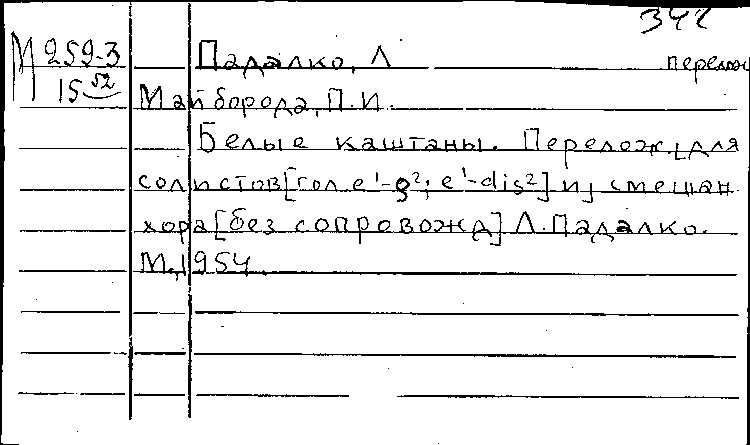 342
М 259-3 Падалко, Л перелож
15 52
Майборода, П. И.
Белые каштаны. Перелож. [для
солистов [гол e¹-g²; e¹-dis²] и] смешан.
хора [без сопровожд] Л. Падалко.
М., 1954.